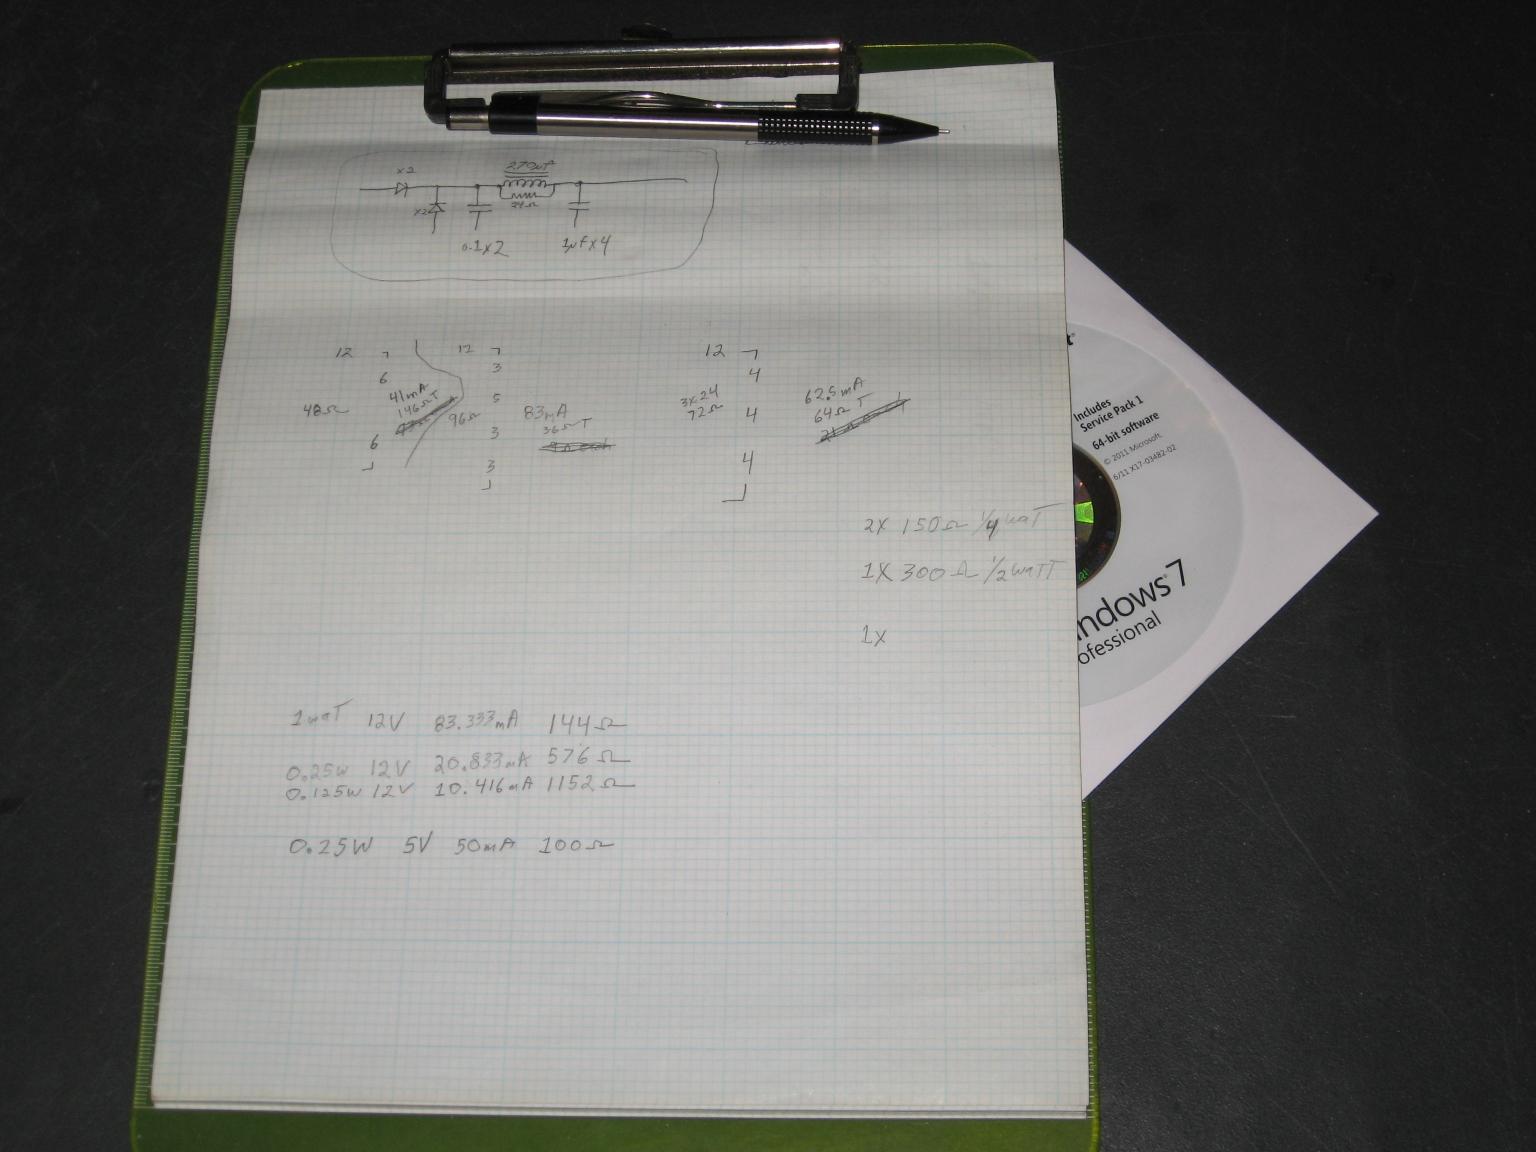 x2
270µF
x2
24Ω
0.1x2
1µF x4
12
6
48Ω
41mA
146Ω T
6
12
3
5
96Ω
83mA
36Ω T
3
3
12
4
3x24
72Ω
4
62.5mA
64Ω T
4
2X 150Ω 1/4 waT
1X 300Ω 1/2 waTT
1x
1 waT 12V 83.333mA 144Ω
0.25W 12V 20.833mA 576Ω
0.125W 12V 10.416mA 1152Ω
0.25W 5V 50mA 100Ω
Includes
Service Pack 1
64-bit software
© 2011 Microsoft
6/11 X17-03482-02
ndows 7
ofessional